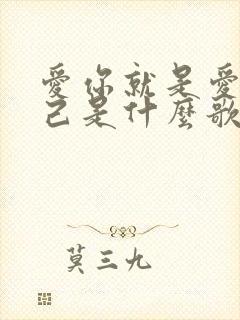 愛你就是愛
己是什麼歌
莫三九